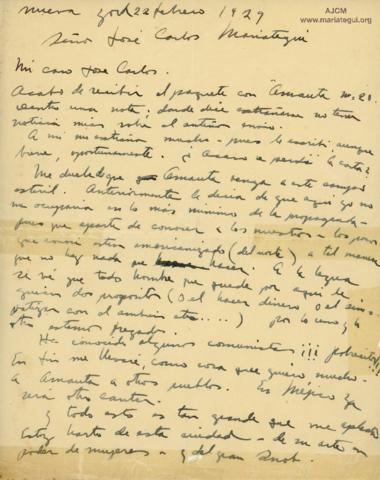 AJCM
www.mariategui.org
nueva york 22 febrero 1929
Señor José Carlos Mariategui
Mi caro Jose Carlos.
Acabo de recibir el paquete con "Amauta" no. 20.
una nota; donde dice extrañarse no tener
noticia mia sobre el anterior envio.
A mi me extraña mucho - pues le escribi, aunque
breve, oportunamente. ¿Acaso se perdió la carta?
Me duele que Amauta venga a este campo
esteril. Anteriormente le decia de que aqui yo no
me ocuparia en lo más minimo de la propaganda -
pues que aparte de conocer a los nuestros - los pocos
que conoci estan americanizados (del norte) a tal manera
que no hay nada que hacer. A la legua
se vé que todo hombre que quede por aqui le
guian dos proposito (o el hacer dinero o el sim-
patizar con el ambiente etc.....) por lo uno y lo
otro estamos fregados.
He conocido algunos comunistas!!! pobrecitos!!!
En fin me llevaré, como cosa que quiero mucho -
a Amauta a otros pueblos. En Méjico ya
será otro cantar.
y todo esto es tan grande que me aplasta
Estoy harto de esta ciudad - de su arte en
poder de mujeres - y del gran Snob.